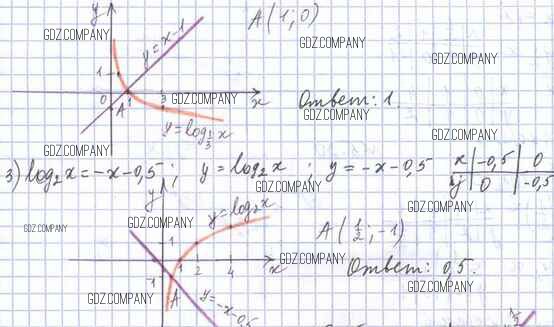 y
A(1;0)
GDZ.COMPANY
y=x-1
GDZ.COMPANY
GDZ.COMPANY
1
0 A 1 3 x
GDZ.COMPANY
Ответ: 1.
y=log_{1/3} x
GDZ.COMPANY
GDZ.COMPANY
3) log₂x=-x-0,5; y=log₂x; y=-x-0,5
x | -0,5 | 0
y | 0 | -0,5
GDZ.COMPANY
y
y=log₂x
GDZ.COMPANY
GDZ.COMPANY
1
A(1/2;-1)
1 2 4 x
GDZ.COMPANY
Ответ: 0,5.
-1
A
GDZ.COMPANY
y=-x-0,5
GDZ.COMPANY